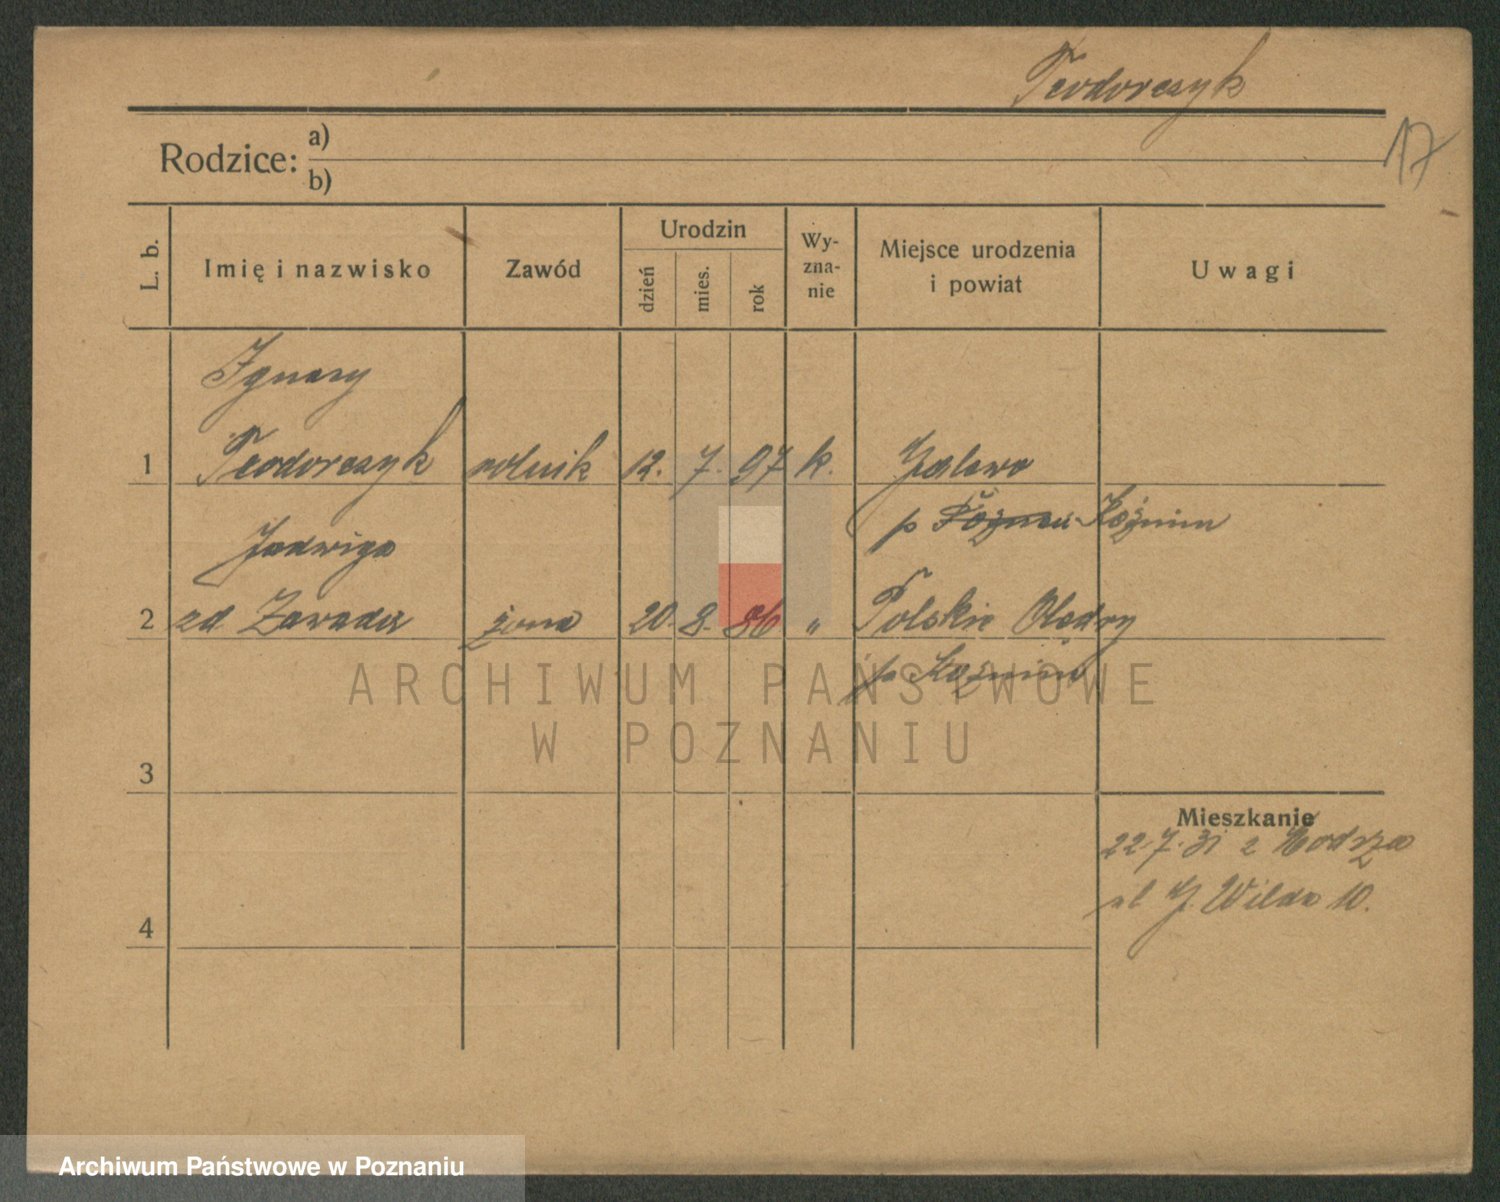 Teodorczyk
17
Rodzice: a)
b)
L. b.
Imię i nazwisko
Zawód
Urodzin
dzień
mies.
rok
Wy-
zna-
nie
Miejsce urodzenia
i powiat
Uwagi
Ignacy
1 Teodorczyk rolnik 12. 7. 97 k.
p Koźmin
Jadwiga
2 zd Zawada żona 20. 8. 86 " Polskie Olędry
p Koźmin
3
Mieszkanie
22.7.31 z
4
ul G. Wilda 10.
ARCHIWUM PAŃSTWOWE
W POZNANIU
Archiwum Państwowe w Poznaniu